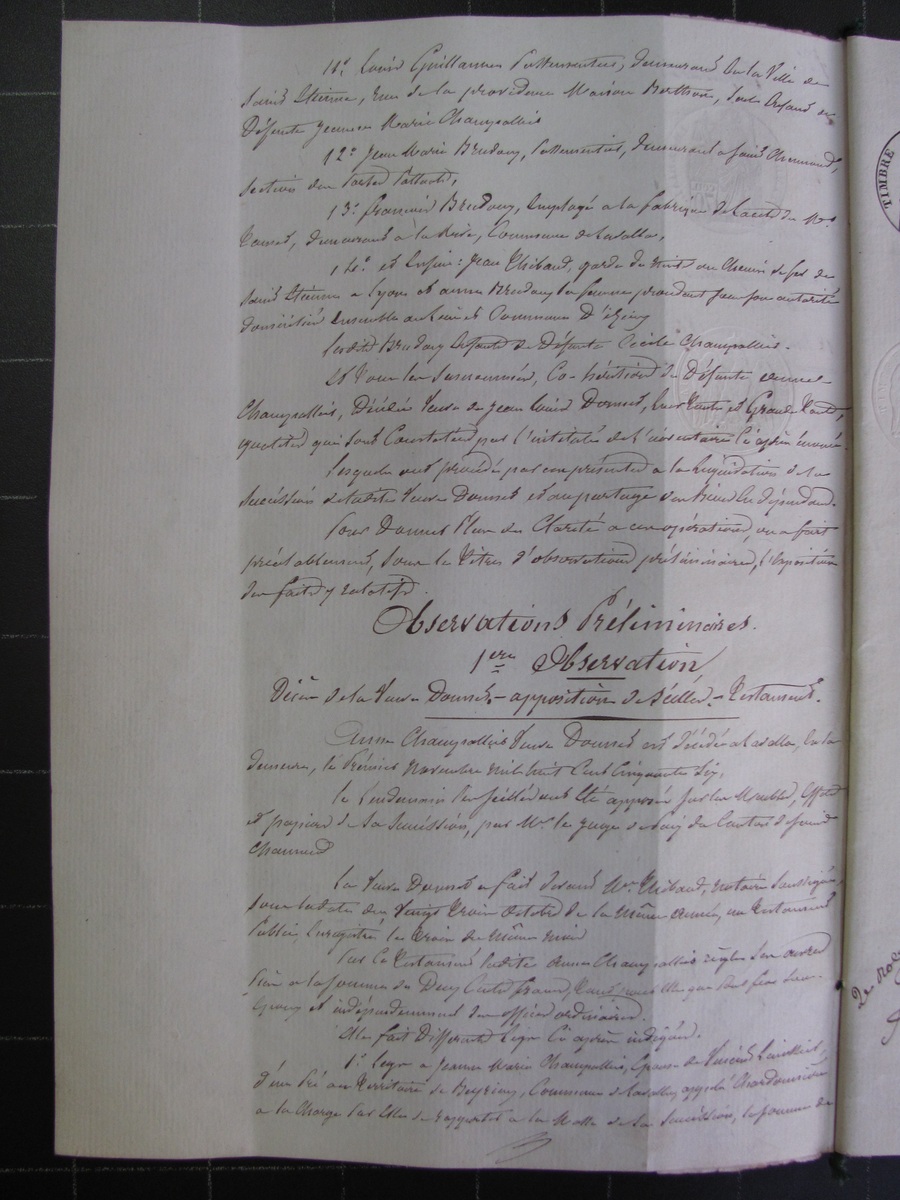 11° Louis Guillaumer Passementier, demeurant en la Ville de
Saint Etienne, rue de la providence Maison Berthon, seul Enfant de
Défunte Jeanne Marie Champallier
12° Jean Marie Brudouy, Passementier, demeurant à Saint Chamond,
section des
13° François Brudouy, Employé à la fabrique de lacets de Mrs
demeurant à la Rive, Commune de Lavalla,
14° et Enfin: Jean Thibaud, garde de nuit au Chemin de fer de
Saint Etienne à Lyon et anne Brudouy sa femme procédant sous son autorité
domiciliés Ensemble au lieu et Commune D'
Lesdits Brudouy Enfants de Défunte Cécile Champallier.
Et Tous les Susnommés, Co-héritiers de Défunte anne
Champallier, Décédée Veuve de Jean Louis Dorunet, leur Tante et Grand Tante,
qualités qui sont Constatées par l'intitulé de l'inventaire ci après énoncé.
Lesquels ont procédé par ces présentes à la liquidation de la
succession de ladite Veuve Dorunet et au partage des biens En dépendant.
Pour Donner Plus de Clarté à ces opérations, on a fait
préalablement, sous le Titre d'observations préliminaires, l'exposition
des faits y relatifs.
Observations Préliminaires.
1ere Observation
Décès de la Veuve Dorunet - apposition de Scellés - Testament.
Anne Champallier Veuve Dorunet est décédée à Lavalla, en sa
demeure, le Premier Novembre mil huit Cent Cinquante Six,
le Lendemain les scellés ont Eté apposés sur les Meubles, Effets
et papiers de Sa Succession, par Mr le Juge de paix du Canton de Saint
Chamond
La Veuve Dorunet a fait devant Me Thibaud, notaire Soussigné,
sous la date du Vingt Trois Octobre de la Même année, un Testament
Public Enregistré le Trois du Même mois
Par Ce Testament ladite Anne Champallier règle Ses œuvres
Pies à la Somme de Deux Cents francs, tant pour Elle que pour feu Jean
et indépendamment des offices ordinaires.
Elle fait Différents Legs Ci après indiqués.
1° Legs à Jeanne Marie Champallier, Epouse de Vincent
d'un Pré au Territoire de Commune de Lavalla, appelé Chardonnière
à la Charge par Elle de rapporter à la Masse de la Succession, la somme de
TIMBRE